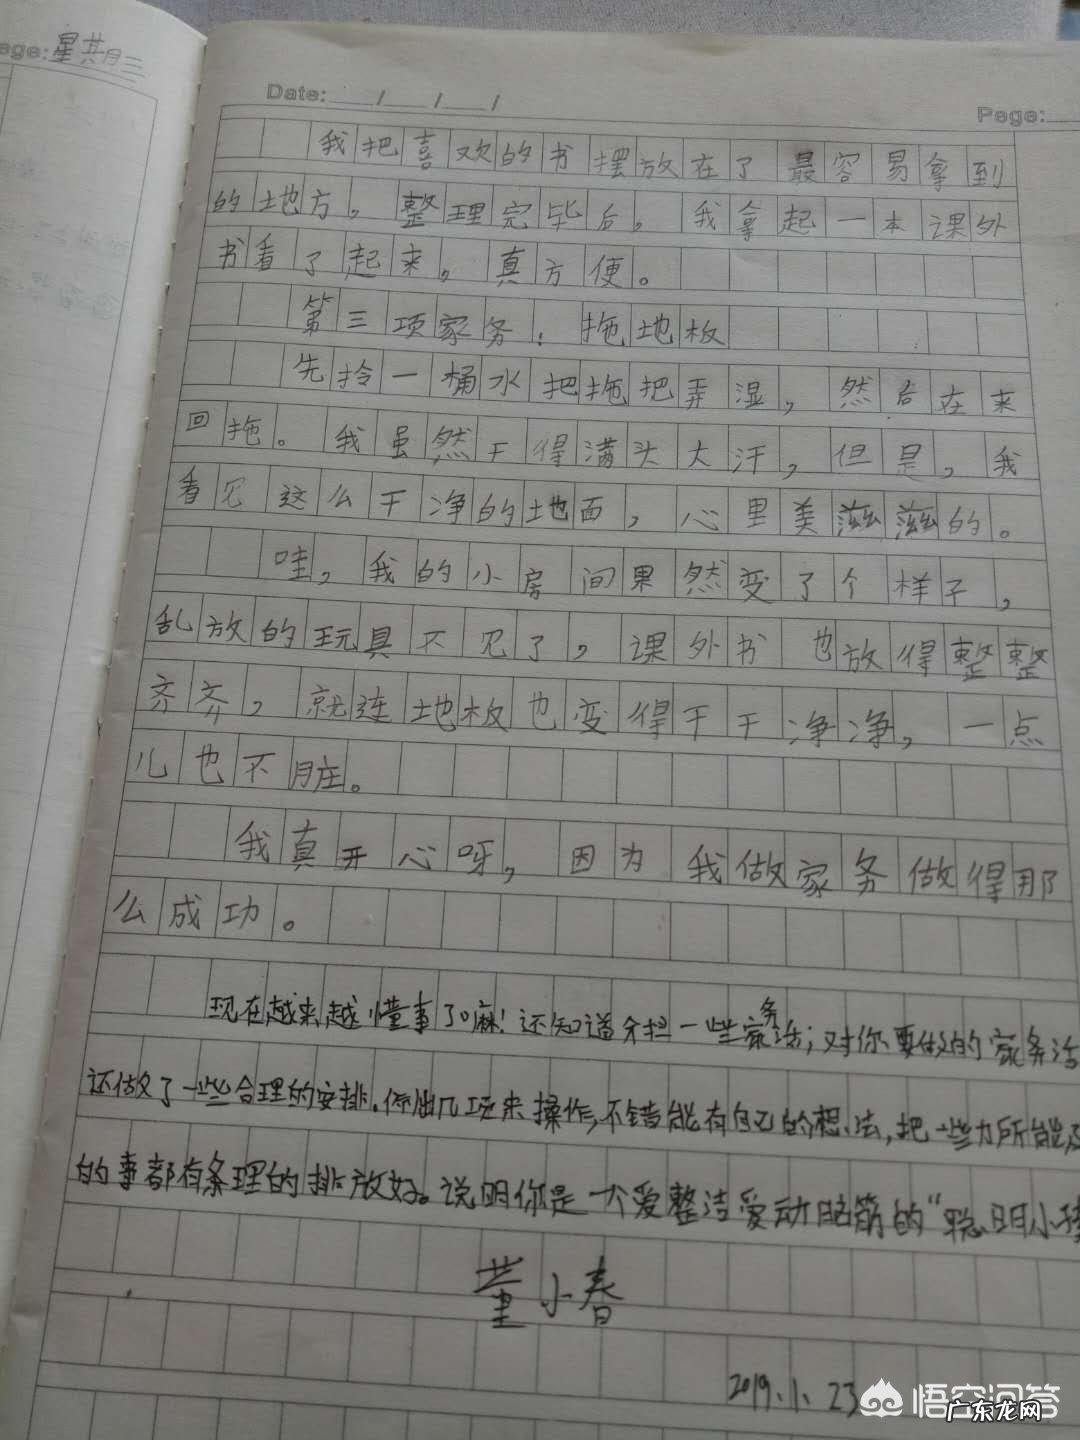 age: 星其月三
Date: / / /
Page:
我把喜欢的书摆放在了最容易拿到
的地方，整理完毕后，我拿起一本课外
书看了起来，真方便。
第三项家务：拖地板
先拎一桶水把拖把弄湿，然后在来
回拖。我虽然干得满头大汗，但是，我
看见这么干净的地面，心里美滋滋的。
哇，我的小房间果然变了个样子，
乱放的玩具不见了，课外书也放得整整
齐齐，就连地板也变得干干净净，一点
儿也不脏。
我真开心呀，因为我做家务做得那
么成功。
现在越来越懂事了嘛！还知道分担一些家务活；对你要做的家务活
还做了一些合理的安排。列出几项来操作，不错能有自己的想法，把一些力所能及
的事都有条理的排放好。说明你是一个爱整洁爱动脑筋的“聪明小孩
董小春
2019.1.23
悟空问答
广东龙网